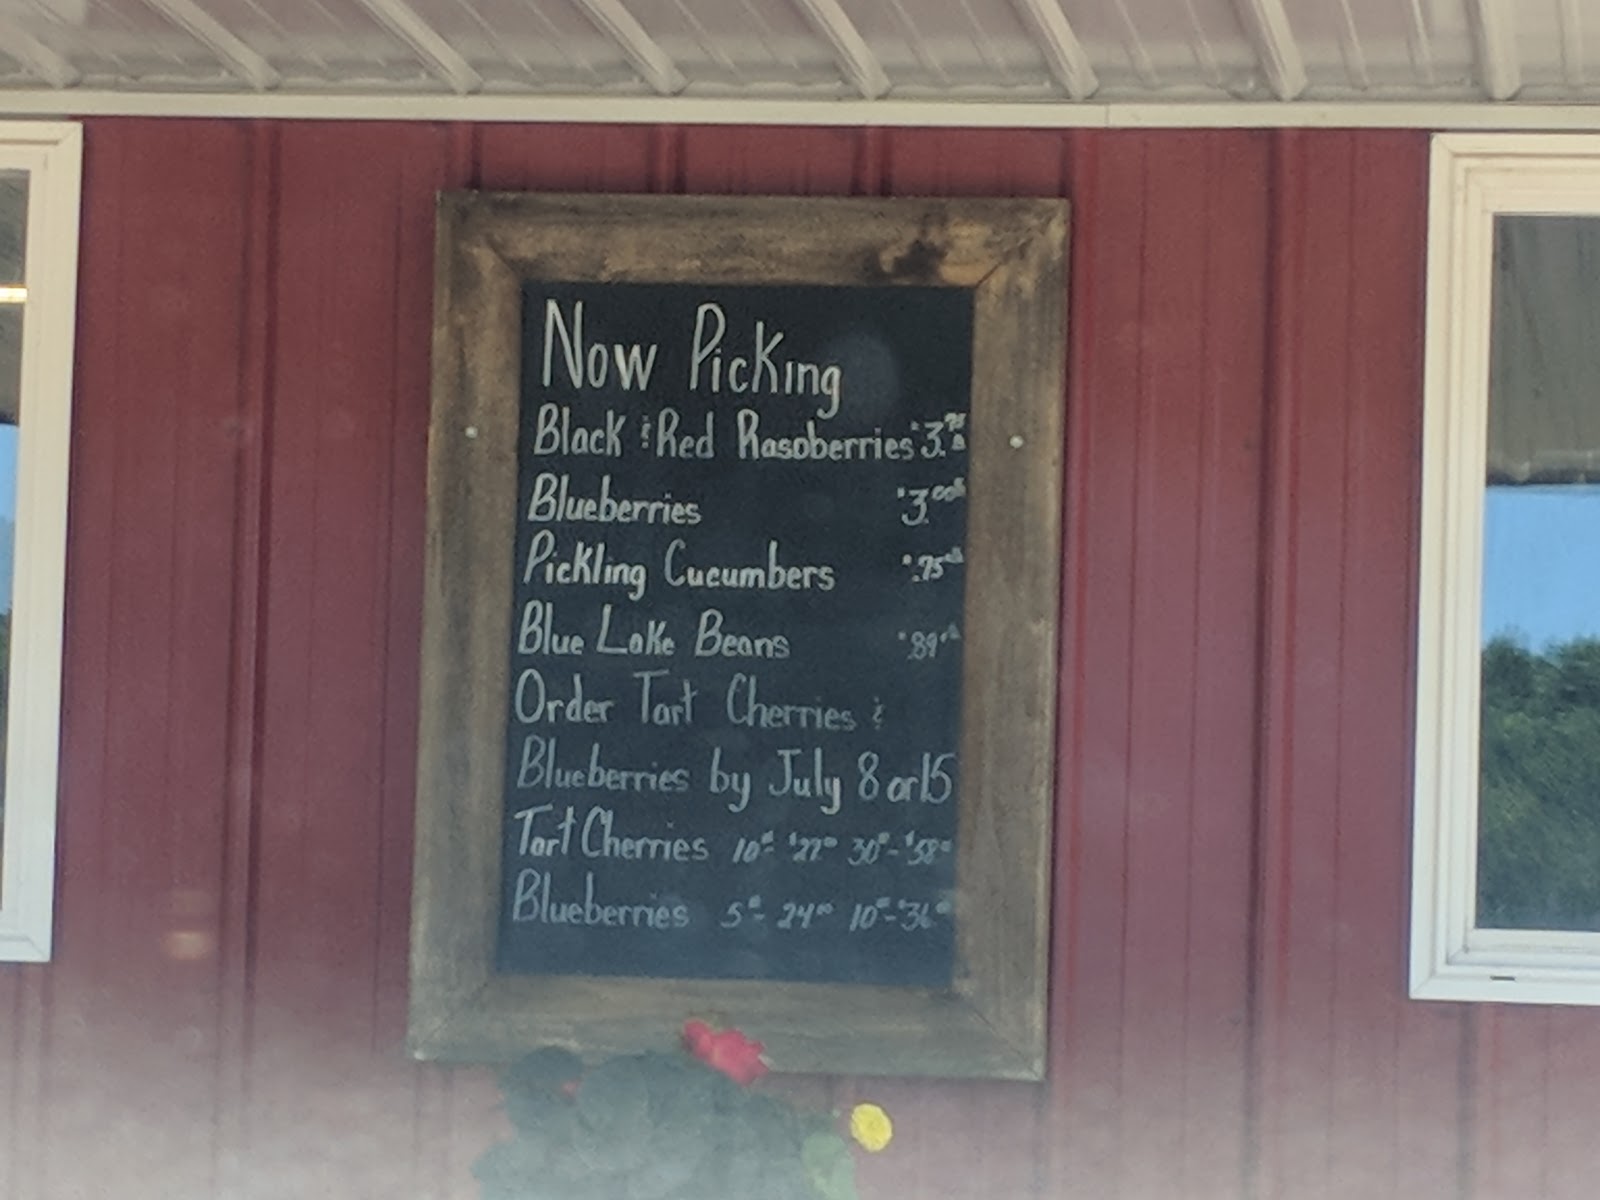 Now Picking
Black & Red Raspberries $3.75 lb
Blueberries $3.00 lb
Pickling Cucumbers $.75 lb
Blue Lake Beans $.89 lb
Order Tart Cherries &
Blueberries by July 8 or 15
Tart Cherries 10# $22.00 30# - $58.00
Blueberries 5# - 24.00 10# - $36.00